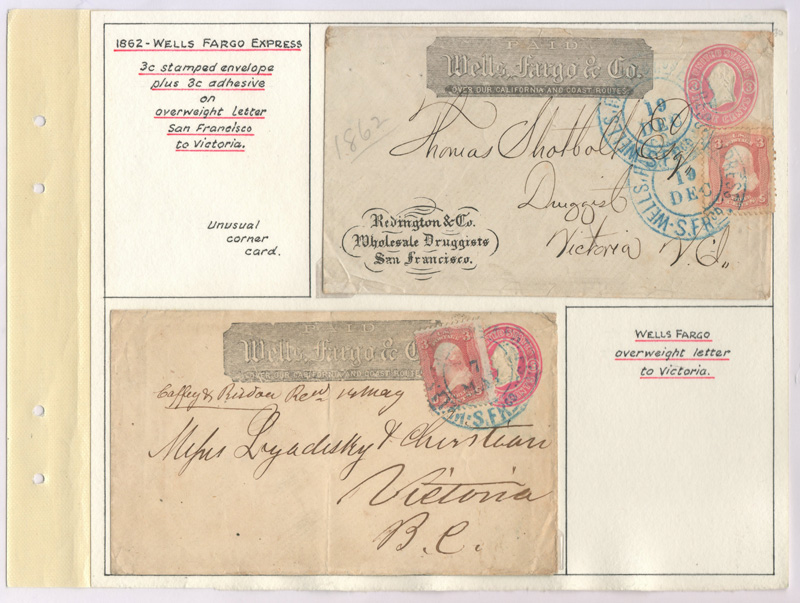 1862 - WELLS FARGO EXPRESS
3c stamped envelope
plus 3c adhesive
on
overweight letter
San Francisco
to Victoria.
Unusual
corner
card.
PAID
Wells, Fargo & Co.
OVER OUR CALIFORNIA AND COAST ROUTES
1862
19
DEC
WELLS. F
19
DEC
WELLS. F
S. FRCO
3 3
Thomas Shotbolt Esq
Druggist
Victoria V.I.,
Redington & Co.
Wholesale Druggists
San Francisco.
PAID
Wells, Fargo & C
OVER OUR CALIFORNIA AND COAST ROUTES
3 3
7
S. FR
Recd 14 May
Messrs &
Victoria
B.C.
WELLS FARGO
overweight letter
to Victoria.